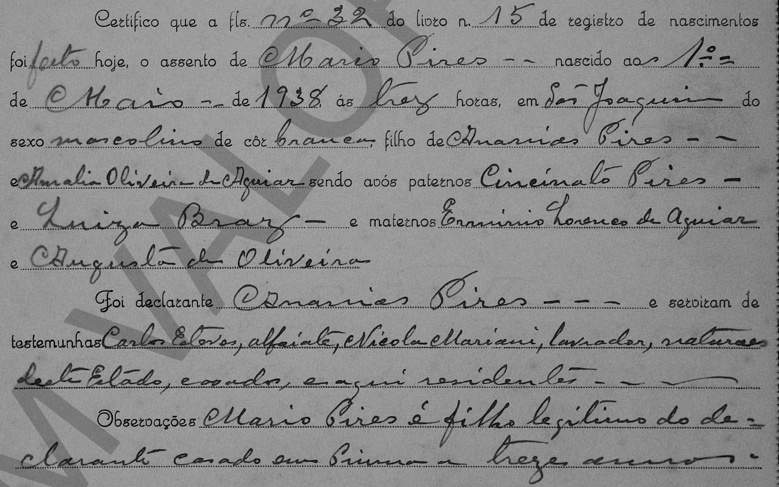 Certifico que a fls. nº 32 do livro n. 15 de registro de nascimentos
foi feito hoje, o assento de Mario Pires -- nascido aos 1º =
de Maio - de 1938 ás trez horas, em São Joaquim do
sexo mascolino de côr branca, filho de Ananias Pires --
e Amalia Oliveira de Aguiar sendo avós paternos Cincinato Pires -
e Luiza Braz - e maternos Erminio Lorenço de Aguiar
e Augusta de Oliveira
Foi declarante Ananias Pires --- e serviram de
testemunhas Carlos Esteves, alfaiate, Nicola Mariani, lavrador, naturaes
deste Estado, casados, e aqui residentes --
Observações Mario Pires é filho legitimo do de-
clarante casado em há treze annos.
M VALOR